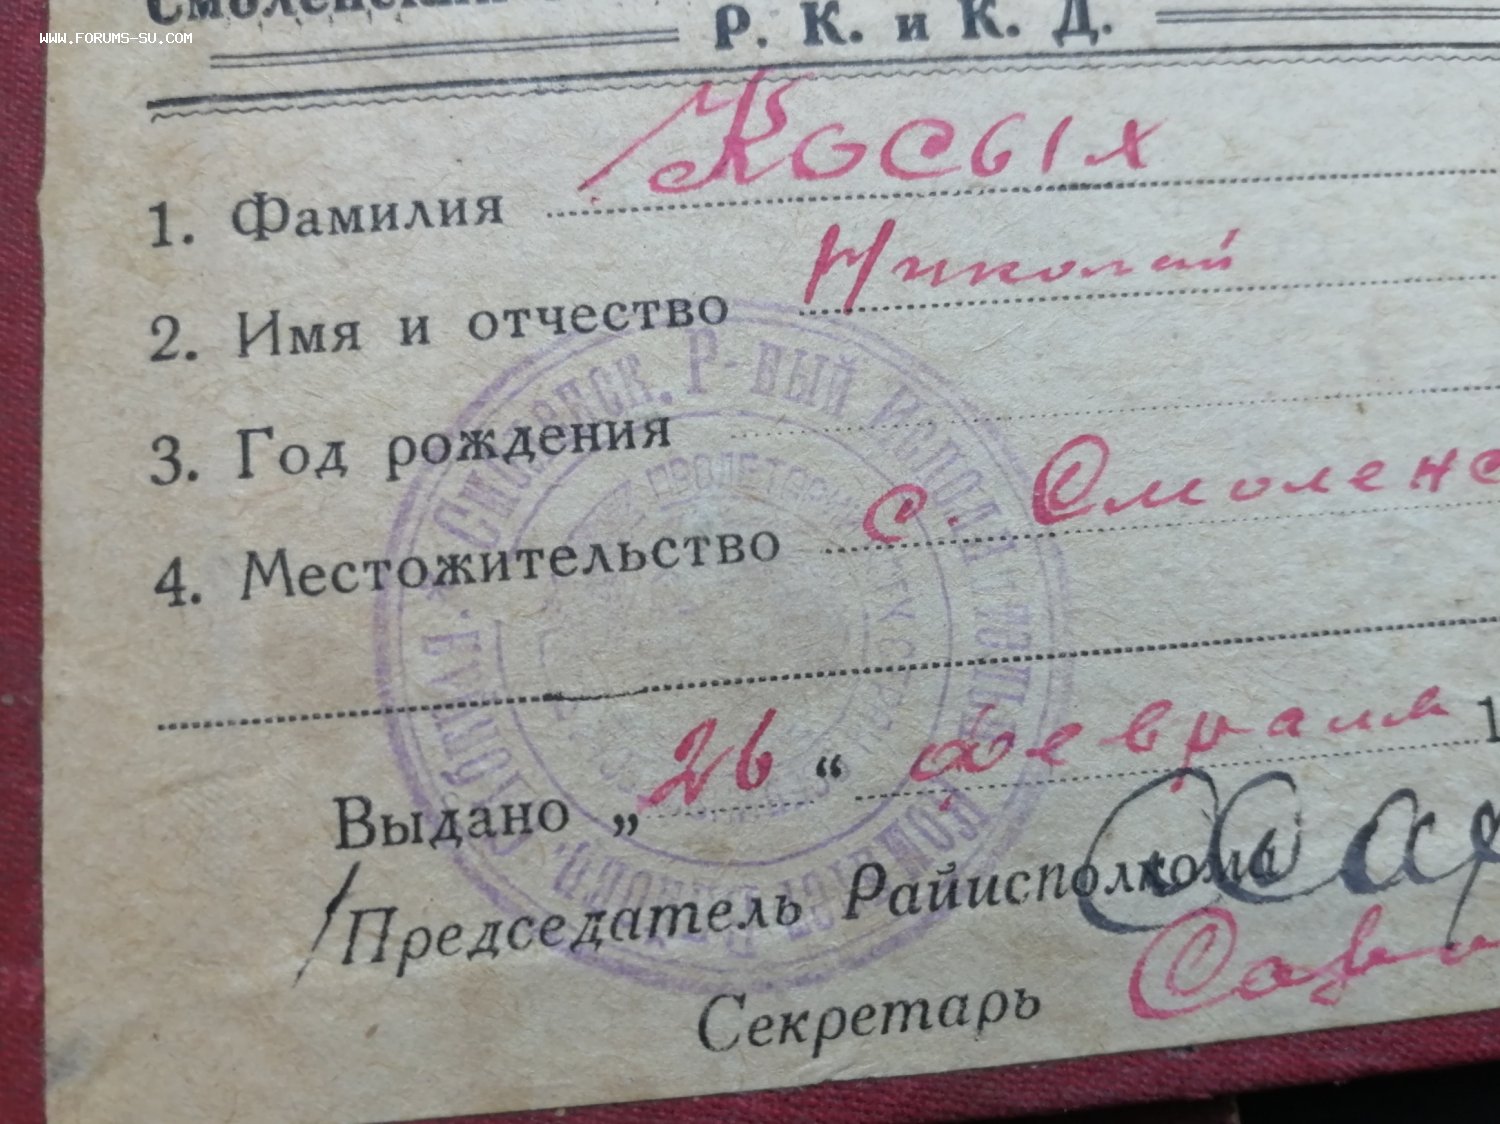 Смоленский
WWW.FORUMS-SU.COM
Р. К. и К. Д.
1. Фамилия Косых
2. Имя и отчество Николай
3. Год рождения
4. Местожительство с. Смоленс
Выдано „26“ февраля 1
Председатель Райисполкома
Секретарь
Смоленск. Р-ный Исполнительный Комитет
ПРОЛЕТАРИИ